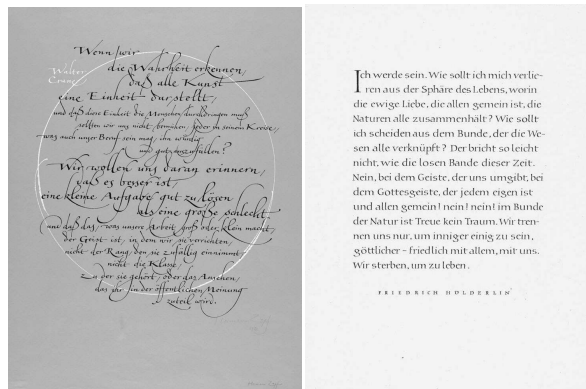 Wenn wir
die Wahrheit erkennen,
daß alle Kunst
eine Einheit darstellt,
und daß diese Einheit die Menschen durchdringen muß
sollten wir uns nicht bemühen, jeder in seinem Kreise,
was auch unser Beruf sein mag, ihn würdig
und gut auszufüllen?
Wir wollen uns daran erinnern,
daß es besser ist,
eine kleine Aufgabe gut zu lösen
als eine große schlecht
und daß das, was unsere Arbeit groß oder klein macht,
der Geist ist, in dem wir sie verrichten,
nicht der Rang, den sie zufällig einnimmt,
nicht die Klasse,
zu der sie gehört, oder das Ansehen,
das ihr in der öffentlichen Meinung
zuteil wird.
Walter
Crane
Ich werde sein. Wie sollt ich mich verlie-
ren aus der Sphäre des Lebens, worin
die ewige Liebe, die allen gemein ist, die
Naturen alle zusammenhält? Wie sollt
ich scheiden aus dem Bunde, der die We-
sen alle verknüpft? Der bricht so leicht
nicht, wie die losen Bande dieser Zeit.
Nein, bei dem Geiste, der uns umgibt, bei
dem Gottesgeiste, der jedem eigen ist
und allen gemein! nein! nein! im Bunde
der Natur ist Treue kein Traum. Wir tren-
nen uns nur, um inniger einig zu sein,
göttlicher - friedlich mit allem, mit uns.
Wir sterben, um zu leben.
FRIEDRICH HÖLDERLIN